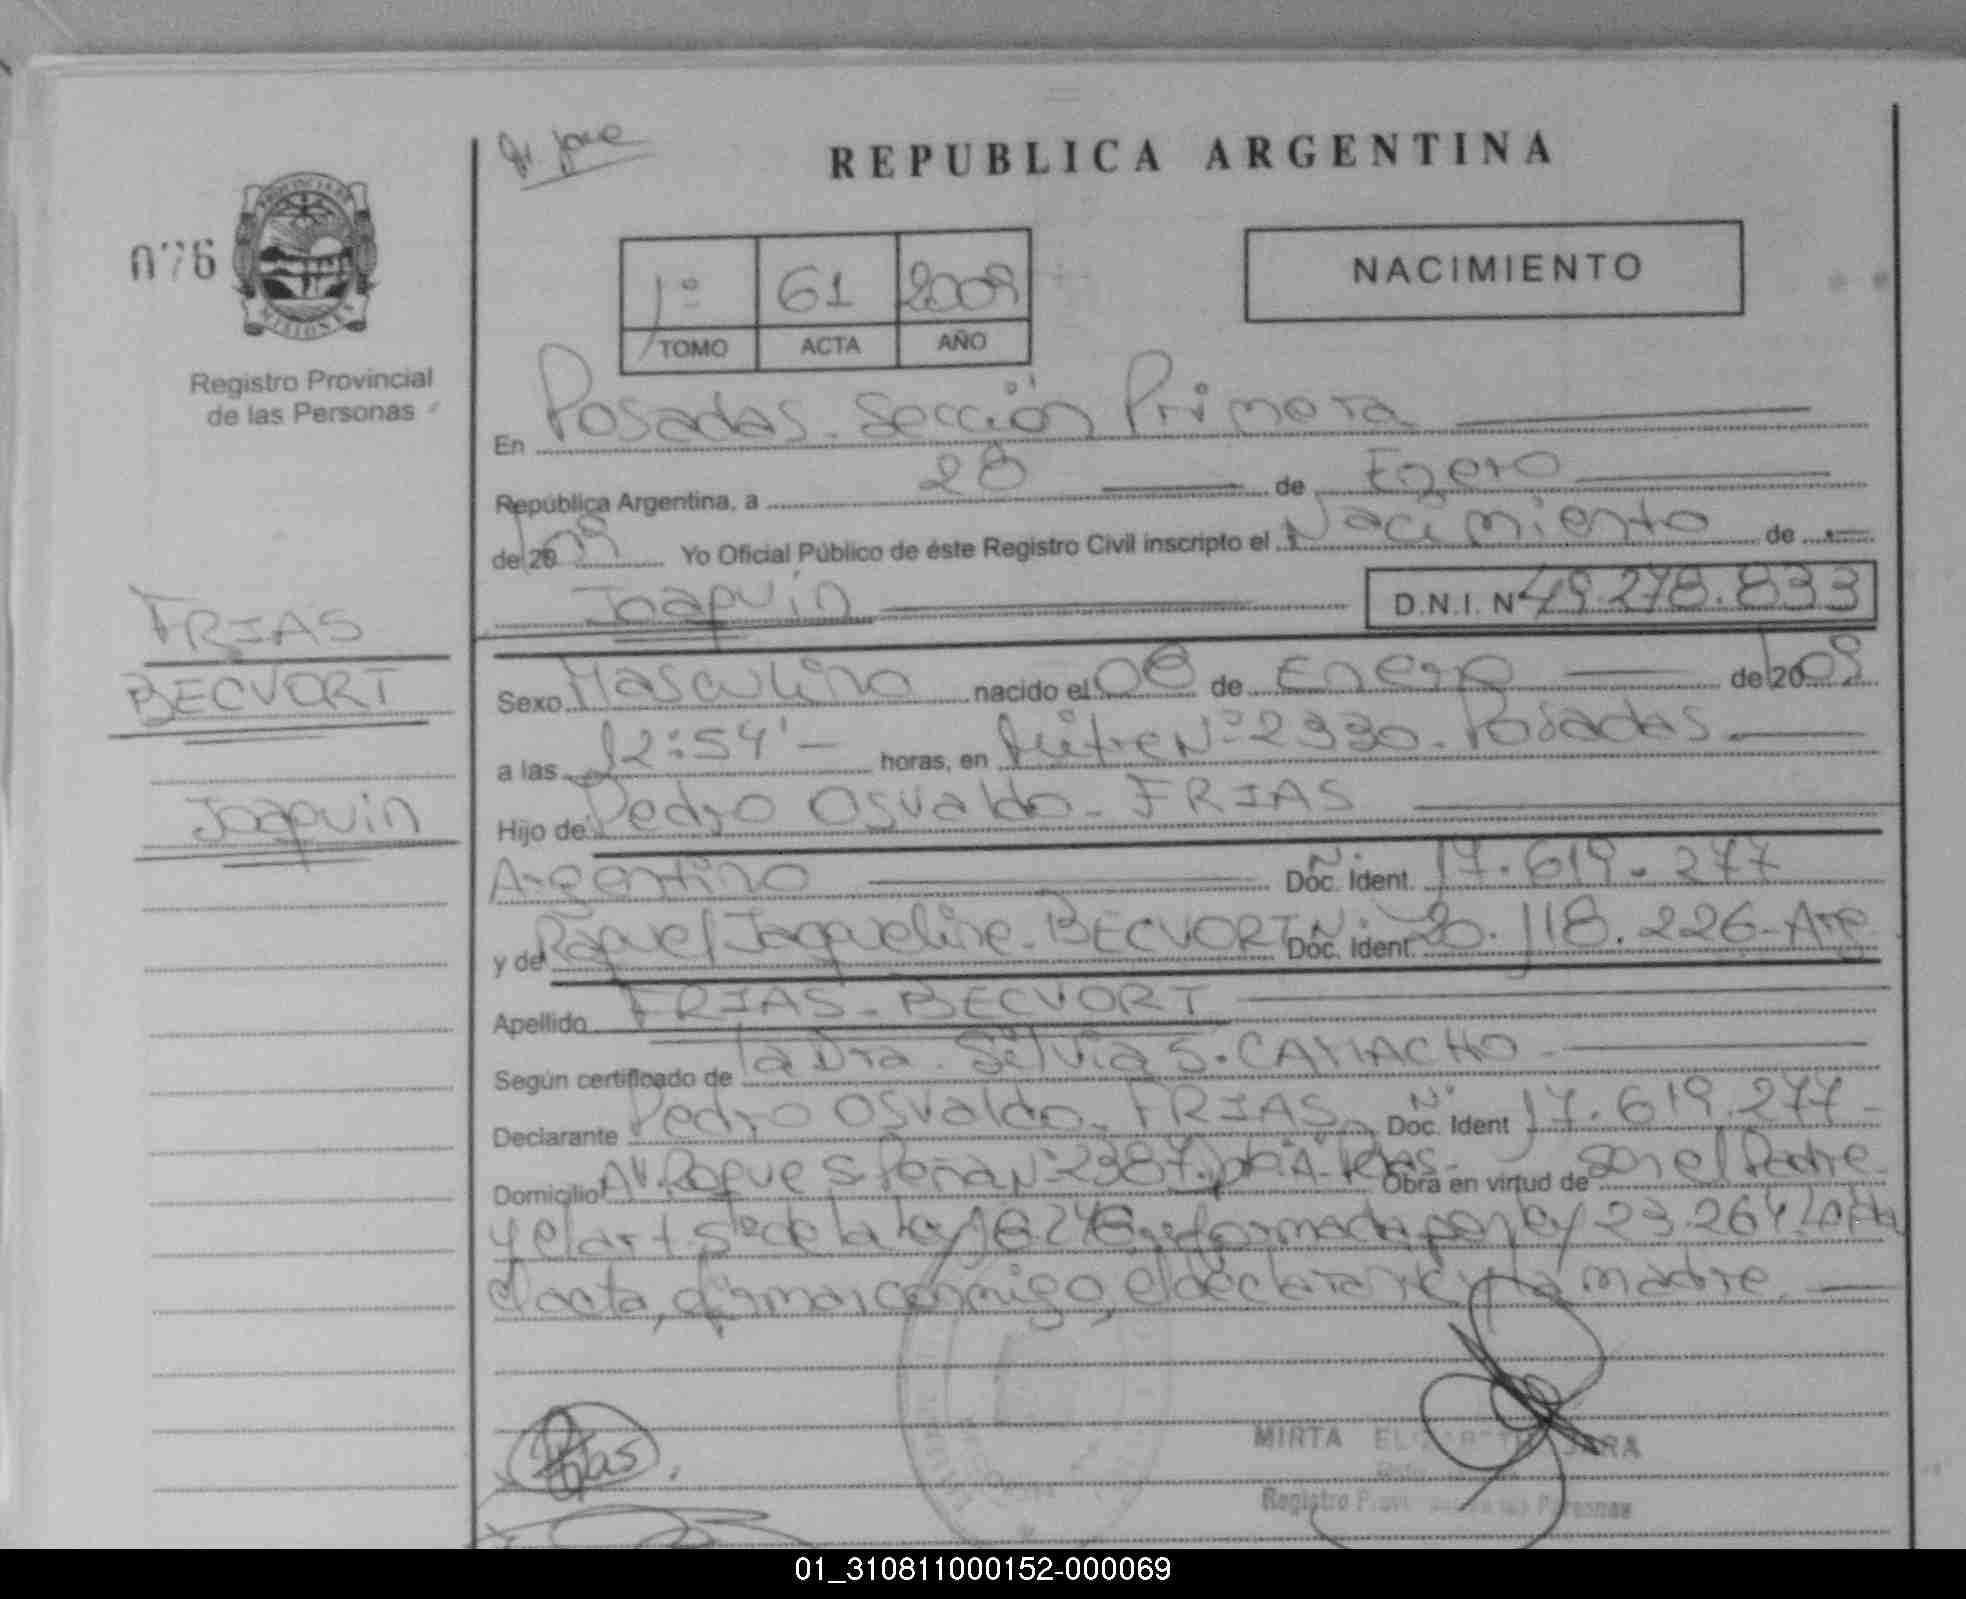 REPUBLICA ARGENTINA
076
PROVINCIA DE
MISIONES
Registro Provincial
de las Personas
1º 61 2009
TOMO ACTA AÑO
NACIMIENTO
En Posadas. Sección Primera
República Argentina, a 28 de Enero
de 2009 Yo Oficial Público de éste Registro Civil inscripto el Nacimiento de
Joaquín D.N.I. Nº 49.278.833
FRIAS
BECVORT
Joaquín
Sexo Masculino nacido el 08 de Enero de 2009
a las 12:54' horas, en Mitre Nº 2330. Posadas
Hijo de Pedro Osvaldo - FRIAS
Argentino Doc. Ident. Nº 17.619.277
y de Raquel Jaqueline. BECVORT Doc. Ident. Nº 20.118.226 - Arg
Apellido FRIAS - BECVORT
Según certificado de la Dra. Silvia S. CAMACHO
Declarante Pedro Osvaldo - FRIAS Doc. Ident Nº 17.619.277
Domicilio Av. Roque S. Peña Nº 2387 Obra en virtud de ser el Padre
y el art 5º de la ley 18.248 reformada por ley 23.264
el acta, firman conmigo, el declarante y la madre.
MIRTA JARA
Registro Personas
01_310811000152-000069